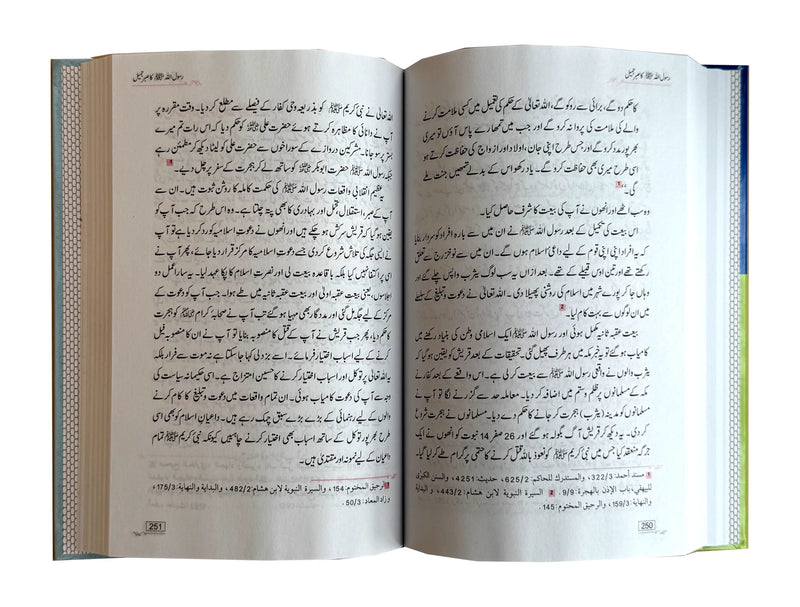 رسول اللہ ﷺ کا صبر جمیل
کا حکم دو گے، برائی سے روکو گے، اللہ تعالیٰ کے حکم کی تعمیل میں کسی ملامت کرنے
والے کی ملامت کی پروا نہ کرو گے اور جب میں تمھارے پاس آؤں تو میری
بھرپور مدد کرو گے اور جس طرح اپنی جان، اولاد اور ازواج کی حفاظت کرتے ہو
اسی طرح میری بھی حفاظت کرو گے۔ یاد رکھو اس کے بدلے تمھیں جنت ملے
گی۔“ 1
وہ سب اٹھے اور انھوں نے آپ کی بیعت کا شرف حاصل کیا۔
بیعت کی تکمیل کے بعد رسول اللہ ﷺ نے ان میں سے بارہ افراد کو سردار بنایا
کہ یہ افراد اپنی اپنی قوم کے لیے داعی اسلام ہوں گے۔ ان میں سے نو خزرج سے تعلق
رکھتے تھے اور تین اوس قبیلے کے تھے۔ بعد ازاں یہ سب لوگ یثرب واپس چلے گئے اور
وہاں جا کر پورے شہر میں اسلام کی روشنی پھیلا دی۔ اللہ تعالیٰ نے دعوت و تبلیغ کے سلسلے
میں ان لوگوں سے بہت کام لیا۔ 2
بیعت عقبہ ثانیہ مکمل ہوئی اور رسول اللہ ﷺ ایک اسلامی وطن کی بنیاد رکھنے میں
کامیاب ہو گئے تو یہ خبر مکہ میں ہر طرف پھیل گئی۔ تحقیقات کے بعد قریش کو یقین ہو گیا کہ
یثرب والوں نے واقعی رسول اللہ ﷺ سے بیعت کر لی ہے۔ اس واقعے کے بعد کفار نے
مکہ کے مسلمانوں پر ظلم و ستم میں اضافہ کر دیا۔ معاملہ حد سے گزرنے لگا تو آپ نے
مسلمانوں کو مدینہ (یثرب) ہجرت کر جانے کا حکم دے دیا۔ مسلمانوں نے ہجرت شروع
کر دی۔ یہ دیکھ کر قریش آگ بگولہ ہو گئے اور 26 صفر 14 نبوت کو انھوں نے ایک
جرگہ منعقد کیا جس میں نبی کریم ﷺ کو نعوذ باللہ قتل کرنے کا حتمی پروگرام طے کر لیا گیا۔
1 مسند أحمد: 322/3، والمستدرك للحاكم: 625/2، حديث: 4251، والسنن الكبرى
للبيهقي، باب الإذن بالهجرة: 9/9. 2 السيرة النبوية لابن هشام: 443/2، و البداية
والنهاية: 159/3، والرحيق المختوم: 145.
250
رسول اللہ ﷺ کا صبر جمیل
اللہ تعالیٰ نے نبی کریم ﷺ کو بذریعہ وحی کفار کے فیصلے سے مطلع کر دیا۔ وقت مقررہ پر
آپ نے دانائی کا مظاہرہ کرتے ہوئے حضرت علی کو حکم دیا کہ اس رات تم میرے
بستر پر سو جانا۔ مشرکین دروازے کے سوراخوں سے حضرت علی کو لیٹا دیکھ کر مطمئن رہے
جبکہ رسول اللہ ﷺ حضرت ابوبکر کو ساتھ لے کر ہجرت کے سفر پر چل دیے۔ 1
یہ عظیم انقلابی واقعات رسول اللہ ﷺ کی حکمت کاملہ کا روشن ثبوت ہیں۔ ان سے
آپ کے صبر، استقلال، تحمل اور بہادری کا بھی پتہ چلتا ہے۔ وہ اس طرح کہ جب آپ کو
یقین ہو گیا کہ قریش سرکش ہو چکے ہیں اور انھوں نے دعوت اسلامیہ کو رد کر دیا ہے تو آپ
نے ایسی جگہ کی تلاش شروع کر دی جسے دعوت اسلامیہ کا مرکز قرار دیا جائے، پھر آپ نے
اسی پر اکتفا نہیں کیا بلکہ باقاعدہ بیعت لی اور نصرتِ اسلام کا پکا عہد لیا۔ یہ سارا عمل دو
اجلاسوں، یعنی بیعت عقبہ اولیٰ اور بیعت عقبہ ثانیہ میں طے ہوا۔ جب آپ کو دعوت کے
مرکز کے لیے جگہ مل گئی اور مددگار بھی مہیا ہو گئے تب آپ نے صحابہ کرام کو ہجرت کا
حکم دیا، پھر جب قریش نے آپ کے قتل کا منصوبہ بنایا تو آپ نے ان کا منصوبہ فیل
کرنے کے لیے اسباب اختیار فرمائے۔ اسے بزدلی کہا جا سکتا ہے نہ موت سے فرار بلکہ
یہ اللہ تعالیٰ پر توکل اور اسباب اختیار کرنے کا حسین امتزاج ہے۔ اسی حکیمانہ سیاست کی
وجہ سے آپ کی دعوت کامیاب ہوئی۔ ان تمام واقعات میں دعوت و تبلیغ کا کام کرنے
والوں کے لیے رہنمائی کے بڑے بڑے سبق چمک رہے ہیں۔ داعیانِ اسلام کو بھی اسی
طرح بھرپور توکل کے ساتھ اسباب بھی اختیار کرنے چاہییں کیونکہ نبی کریم ﷺ تمام
داعیان کے لیے نمونہ اور مقتدیٰ ہیں۔
1 الرحيق المختوم: 154، والسيرة النبوية لابن هشام: 482/2، والبداية والنهاية: 175/3
وزاد المعاد: 50/3.
251